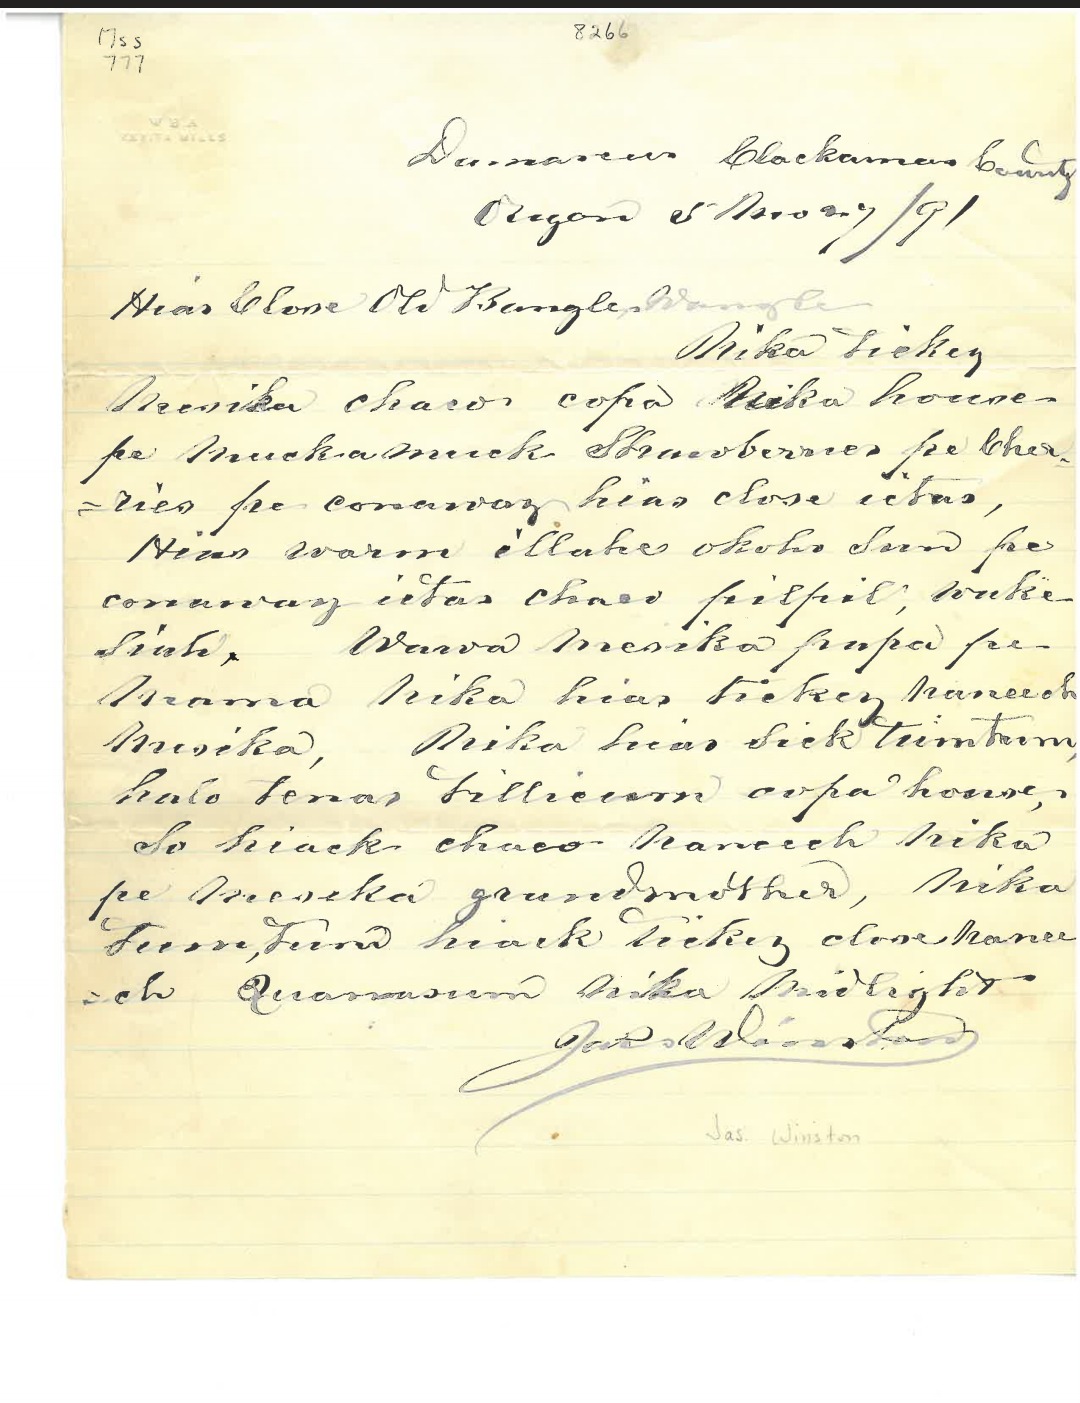 Mss
777
8266
WBA
MILLS
Damascus Clackamas County
Oregon 5 Mo 27/91
Hias Close Old Bangle, Wangle
Nika tickey
Mesika chaco copa Nika house
pe Muckamuck Strawberries pe Cher-
=ries pe conaway hias close ictas,
Hias warm illahe okoke Sun pe
conaway ictas chaco pilpil, wake
Siah. Wawa Mesika papa pe
Mama Nika hias tickey Naneech
Mesika, Nika hias Sick Tumtum,
halo Tenas Tillicum copa house,
So hiack chaco Naneech Nika
pe Mesika grandmother, Nika
Tum,Tum hiack Tickey close Nanee
=ch Quanasum Nika Midlight
Jas Winston
Jas. Winston